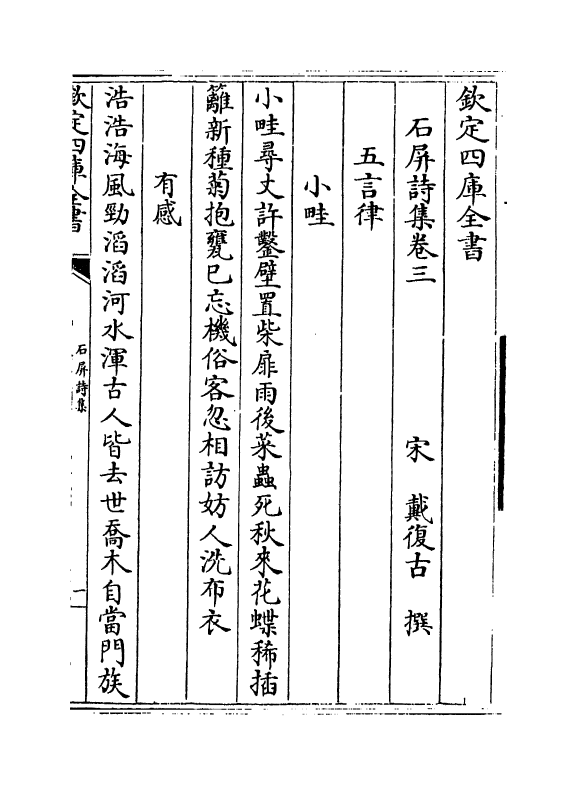 欽定四庫全書
石屏詩集卷三　宋　戴復古　撰
五言律
小畦
小畦尋丈許鑿壁置柴扉雨後菜蟲死秋來花蝶稀插
籬新種菊抱甕已忘機俗客忽相訪妨人洗布衣
有感
浩浩海風勁滔滔河水渾古人皆去世喬木自當門族
欽定四庫全書
石屏詩集
一